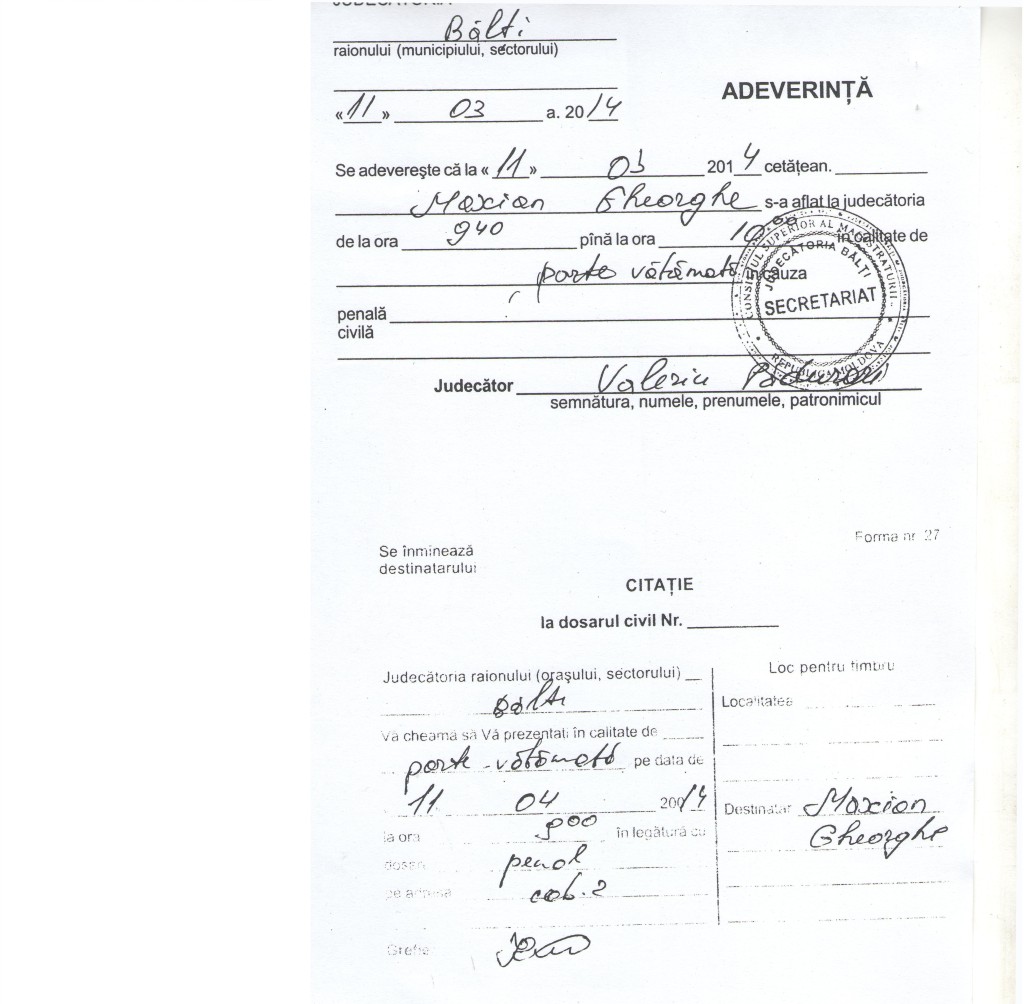 JUDECĂTORIA
Bălti
raionului (municipiului, sectorului)
ADEVERINȚĂ
«11» 03 a. 2014
Se adevereşte că la «11» 03 2014 cetățean.
Maxian Gheorghe s-a aflat la judecătoria
de la ora 940 pînă la ora 10 în calitate de
parte vătămată în cauza
penală
civilă
CONSILIUL SUPERIOR AL MAGISTRATURII
JUDECĂTORIA BĂLȚI
SECRETARIAT
REPUBLICA MOLDOVA
Judecător Valeriu
semnătura, numele, prenumele, patronimicul
Forma nr. 27
Se înminează
destinatarului
CITAȚIE
la dosarul civil Nr.
Judecătoria raionului (oraşului, sectorului)
Bălti
Vă cheamă să Vă prezentati în calitate de
parte vătămată pe data de
11 04 200/4
la ora 900 în legătură cu
dosar penal
pe adresa cab. 2
Grefier
Loc pentru timbru
Localitatea
Destinatar Maxian
Gheorghe